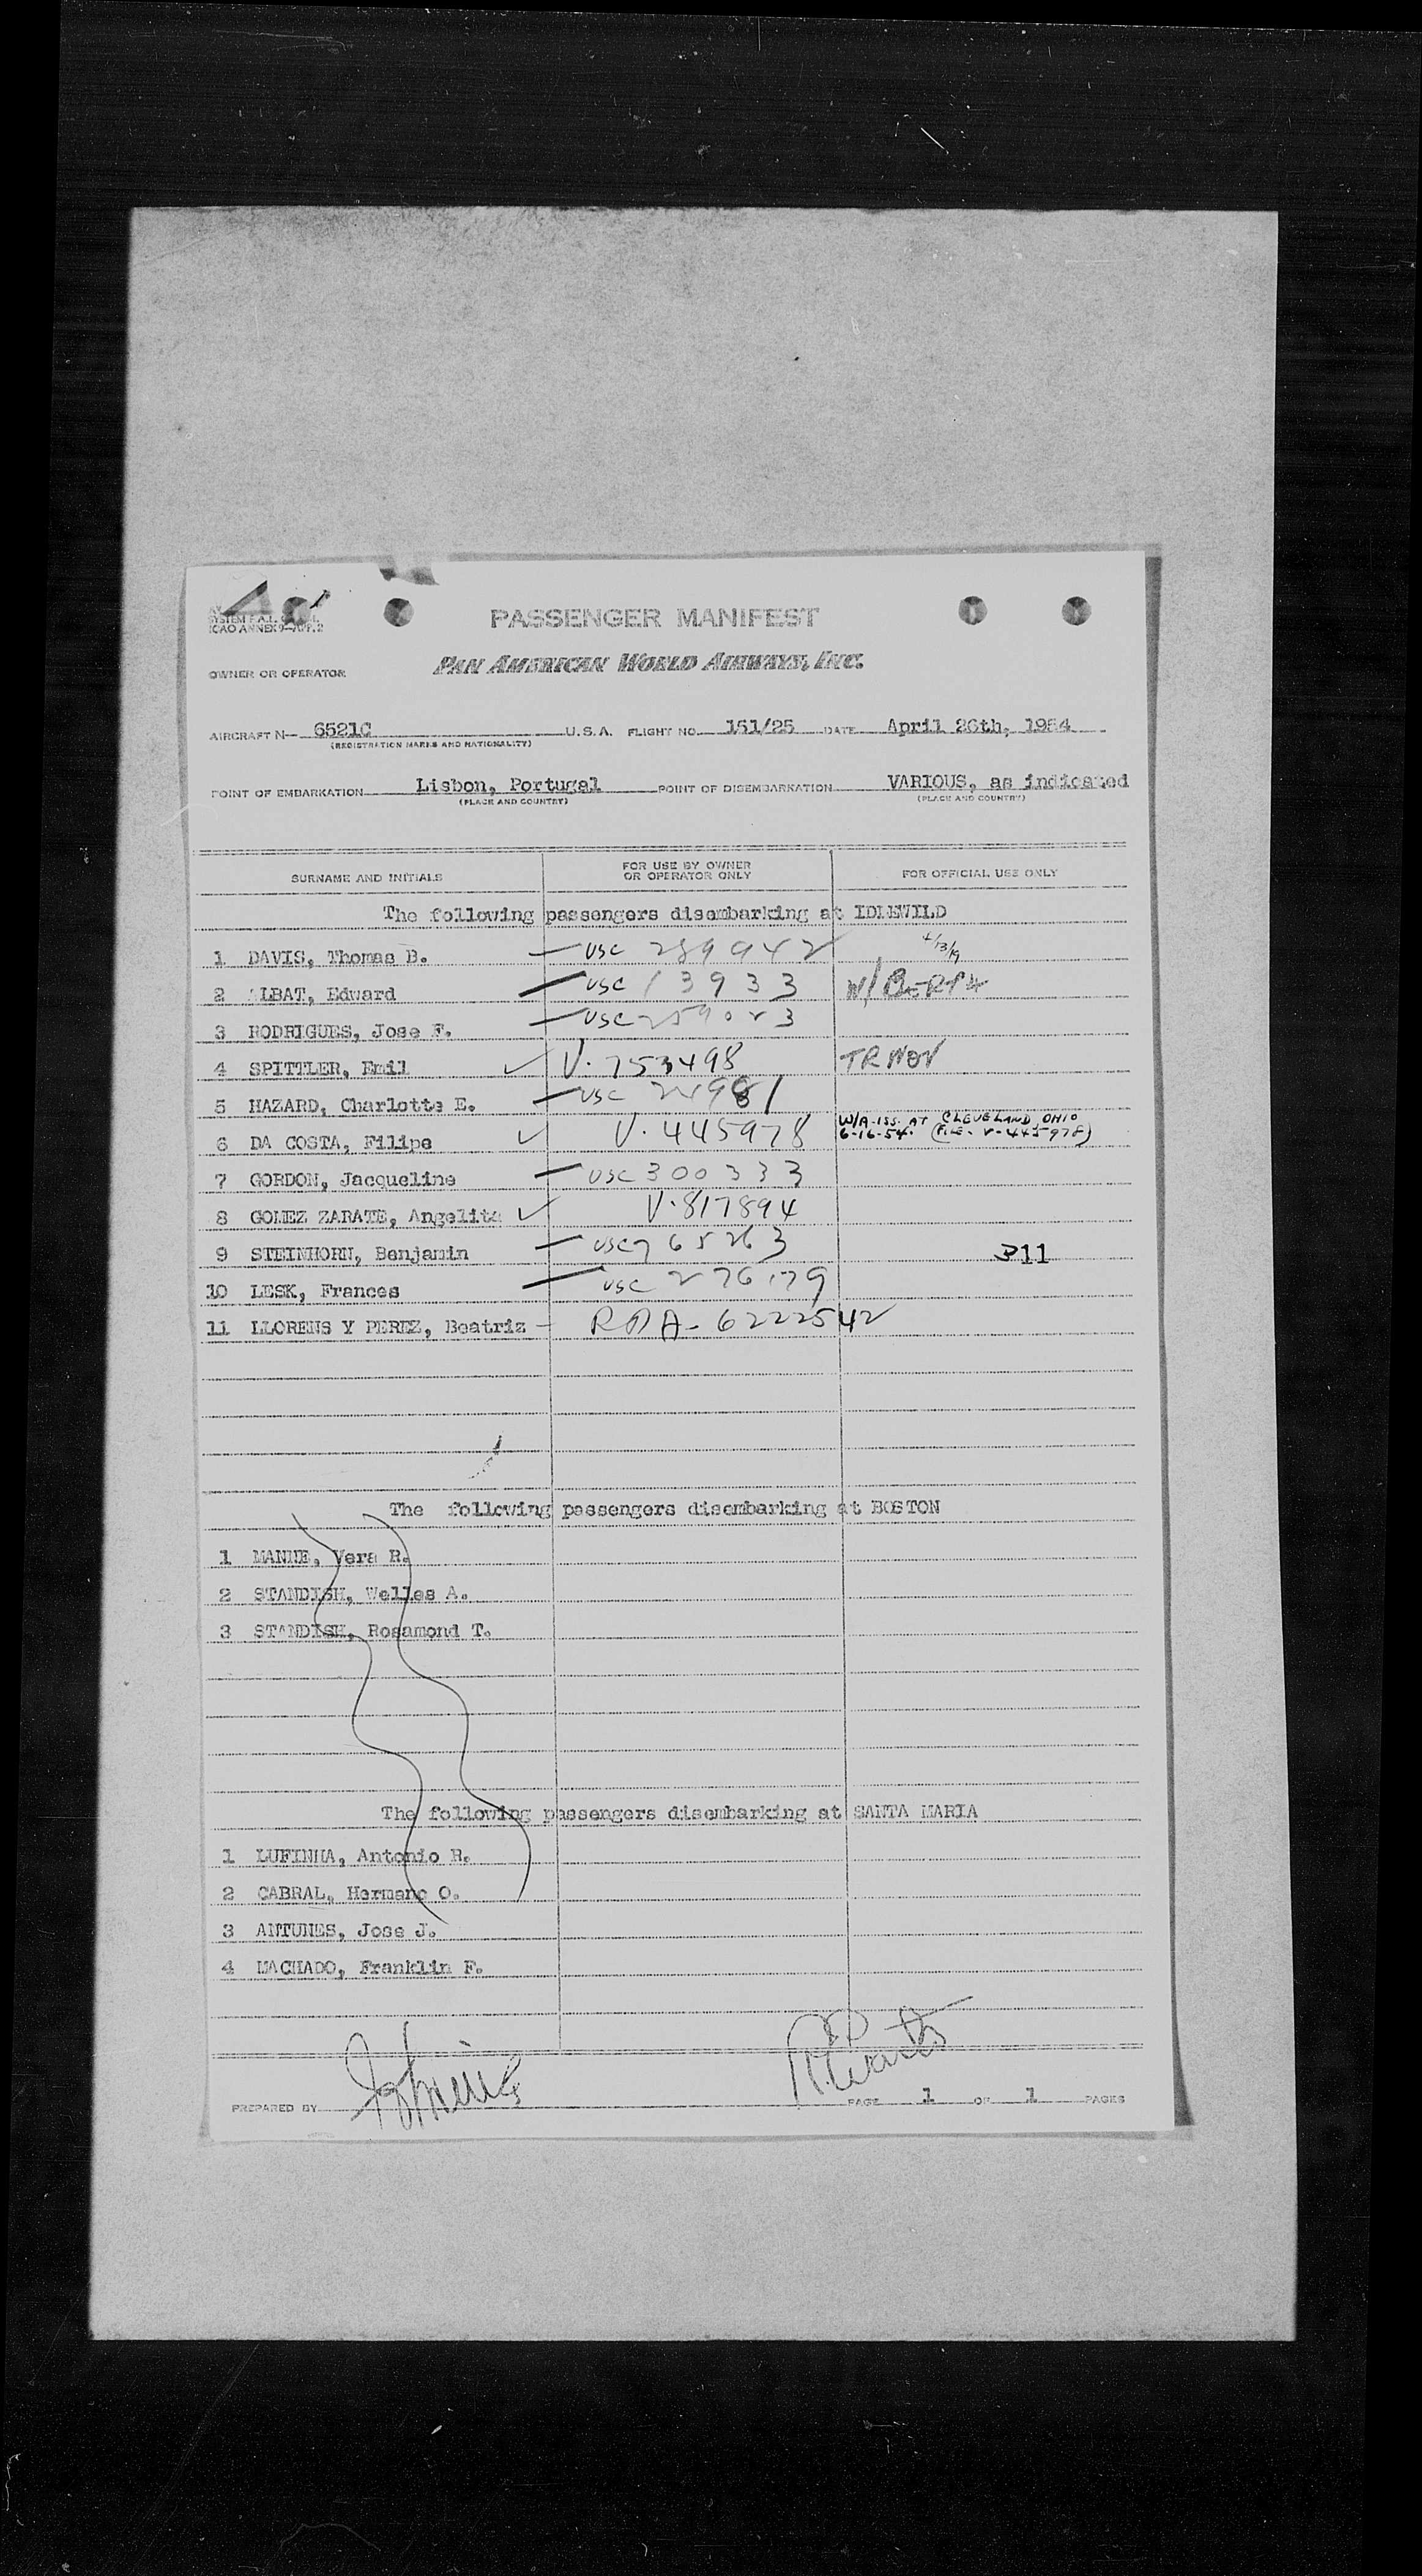 PASSENGER MANIFEST
ICAO ANNEX 9—APP. 2
PAN AMERICAN WORLD AIRWAYS, INC.
OWNER OR OPERATOR
AIRCRAFT N— 6521C U.S.A. FLIGHT NO. 151/25 DATE April 26th, 1954
(REGISTRATION MARKS AND NATIONALITY)
POINT OF EMBARKATION Lisbon, Portugal POINT OF DISEMBARKATION VARIOUS, as indicated
(PLACE AND COUNTRY) (PLACE AND COUNTRY)
SURNAME AND INITIALS FOR USE BY OWNER OR OPERATOR ONLY FOR OFFICIAL USE ONLY
The following passengers disembarking at IDLEWILD
1 DAVIS, Thomas B. — USC 289942 4/13/19
2 LBAT, Edward — USC 13933 W/
3 RODRIGUES, Jose F. — USC 259023
4 SPITTLER, Emil ✓ V. 753498
5 HAZARD, Charlotte E. — USC 24981
6 DA COSTA, Filipe ✓ V. 445978 W/A ISS. AT CLEVELAND, OHIO
6-16-54. (FILE. V-445978)
7 GORDON, Jacqueline — USC 300333
8 GOMEZ ZARATE, Angelita ✓ V. 817894
9 STEINHORN, Benjamin — USC 765263 311
10 LESK, Frances — USC 276179
11 LLORENS Y PEREZ, Beatriz — A- 6222542
The following passengers disembarking at BOSTON
1 MANNE, Vera R.
2 STANDISH, Welles A.
3 STANDISH, Rosamond T.
The following passengers disembarking at SANTA MARIA
1 LUFINHA, Antonio R.
2 CABRAL, Hermano O.
3 ANTUNES, Jose J.
4 MACHADO, Franklin F.
PREPARED BY PAGE 1 OF 1 PAGES